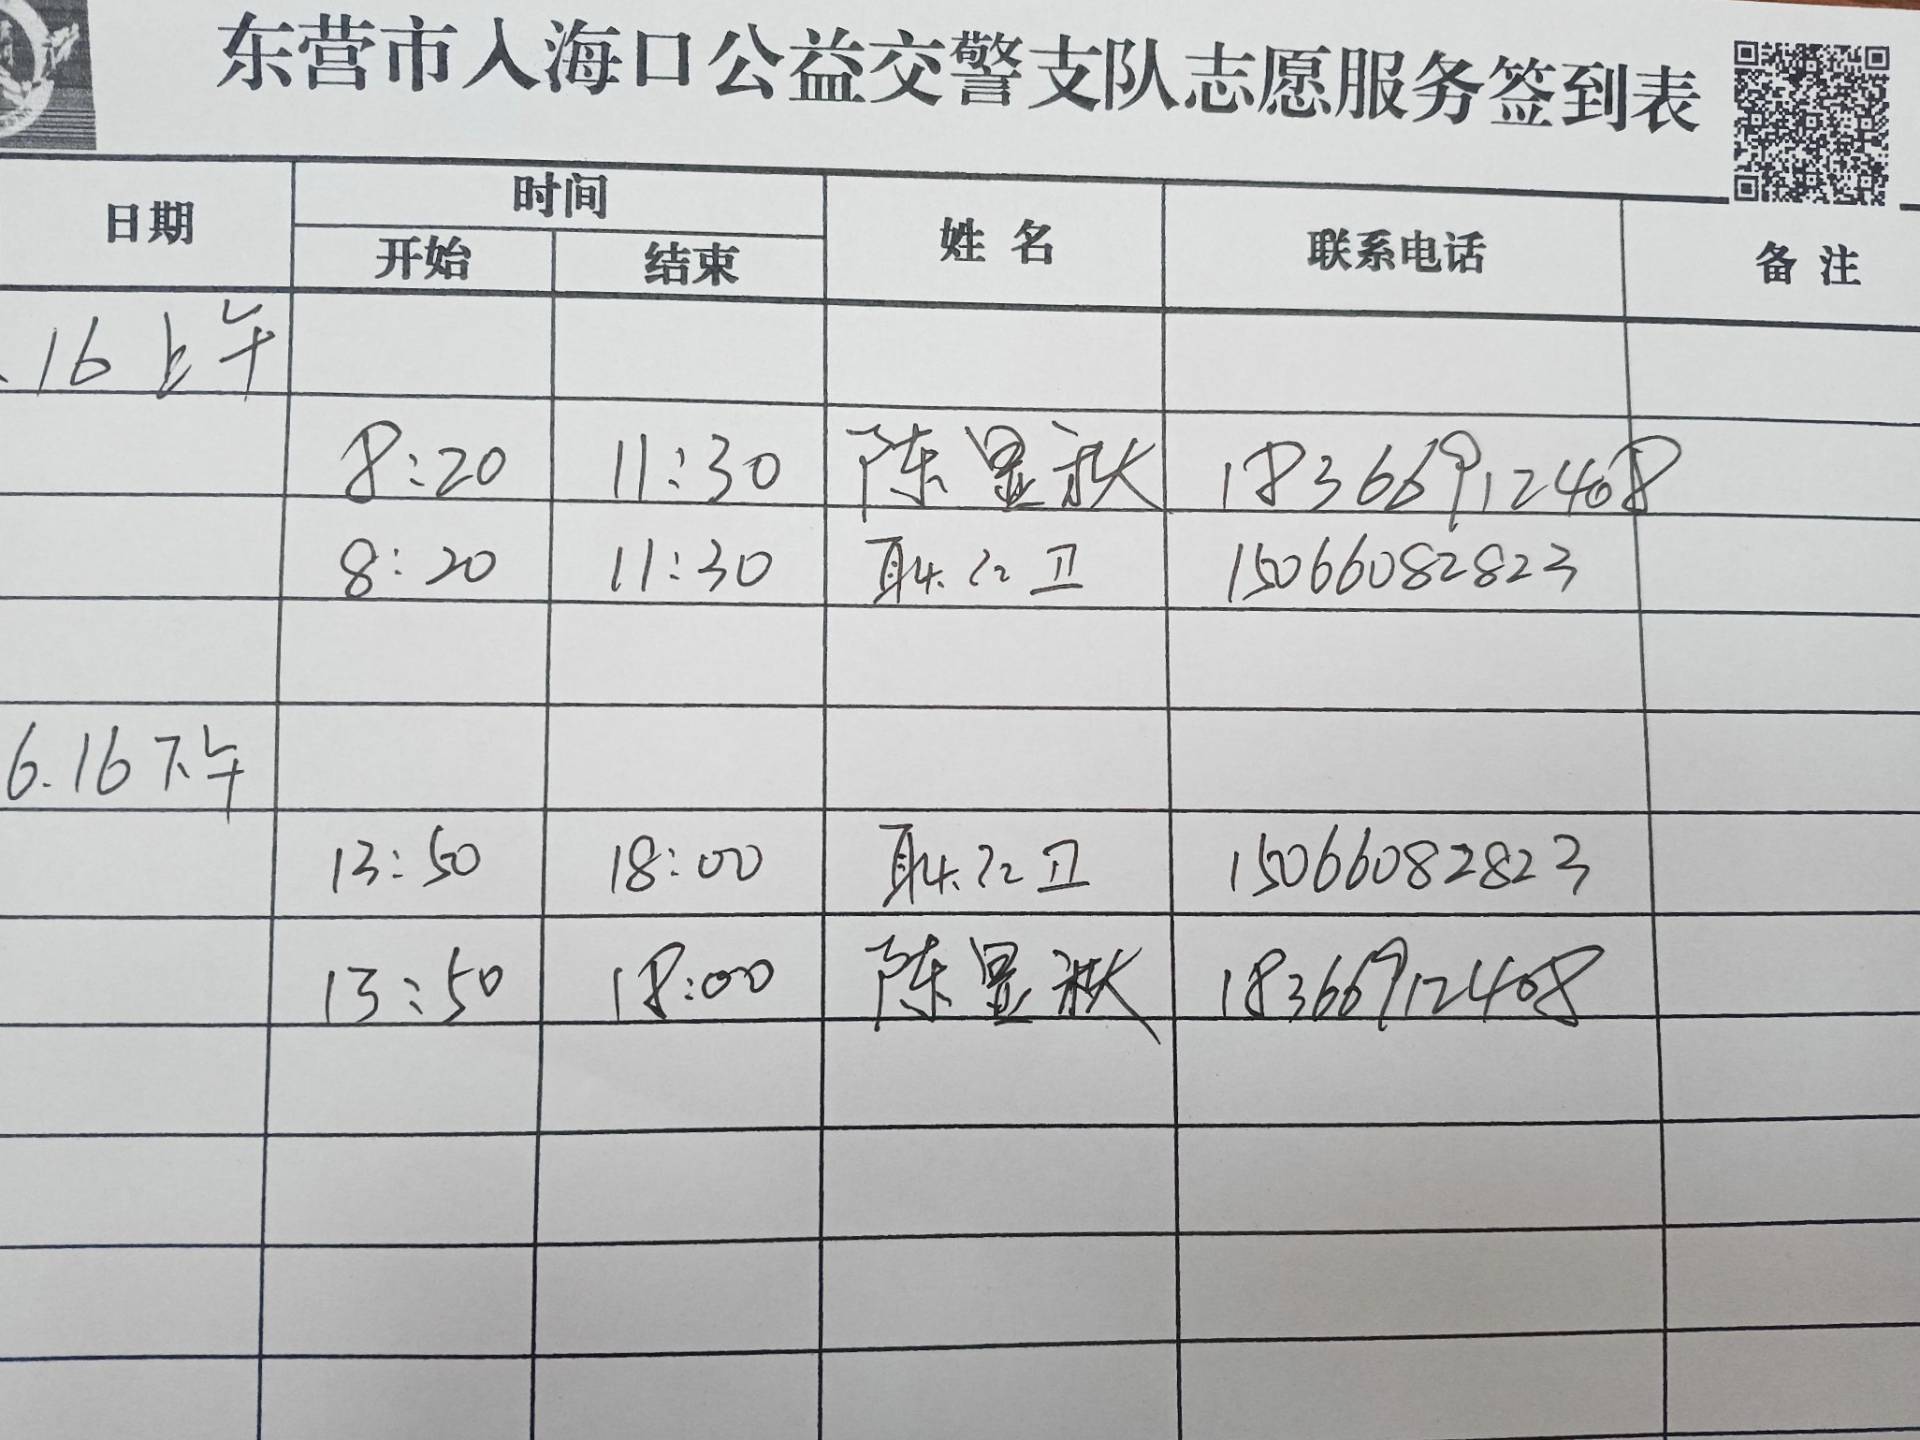 东营市入海口公益交警支队志愿服务签到表
日期 时间 姓名 联系电话 备注
开始 结束
.16 上午
8:20 11:30 陈显秋 18366912408
8:20 11:30 耿江卫 15066082823
6.16 下午
13:50 18:00 耿江卫 15066082823
13:50 18:00 陈显秋 18366912408